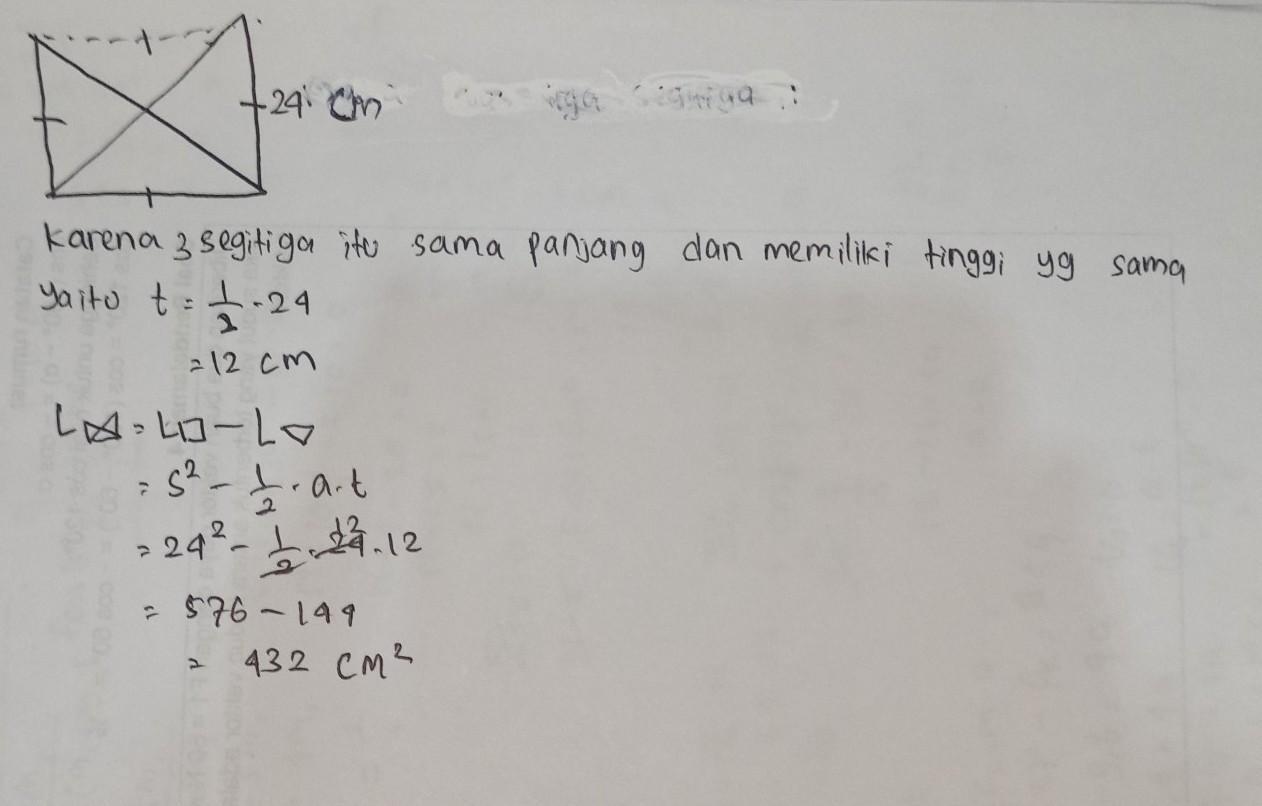 24 cm
Karena 3 segitiga itu sama panjang dan memiliki tinggi yg sama
yaitu t = 1/2 . 24
= 12 cm
L⋈ = L□ - L▽
= s² - 1/2 . a . t
= 24² - 1/2 . 24 12 . 12
= 576 - 144
= 432 cm²